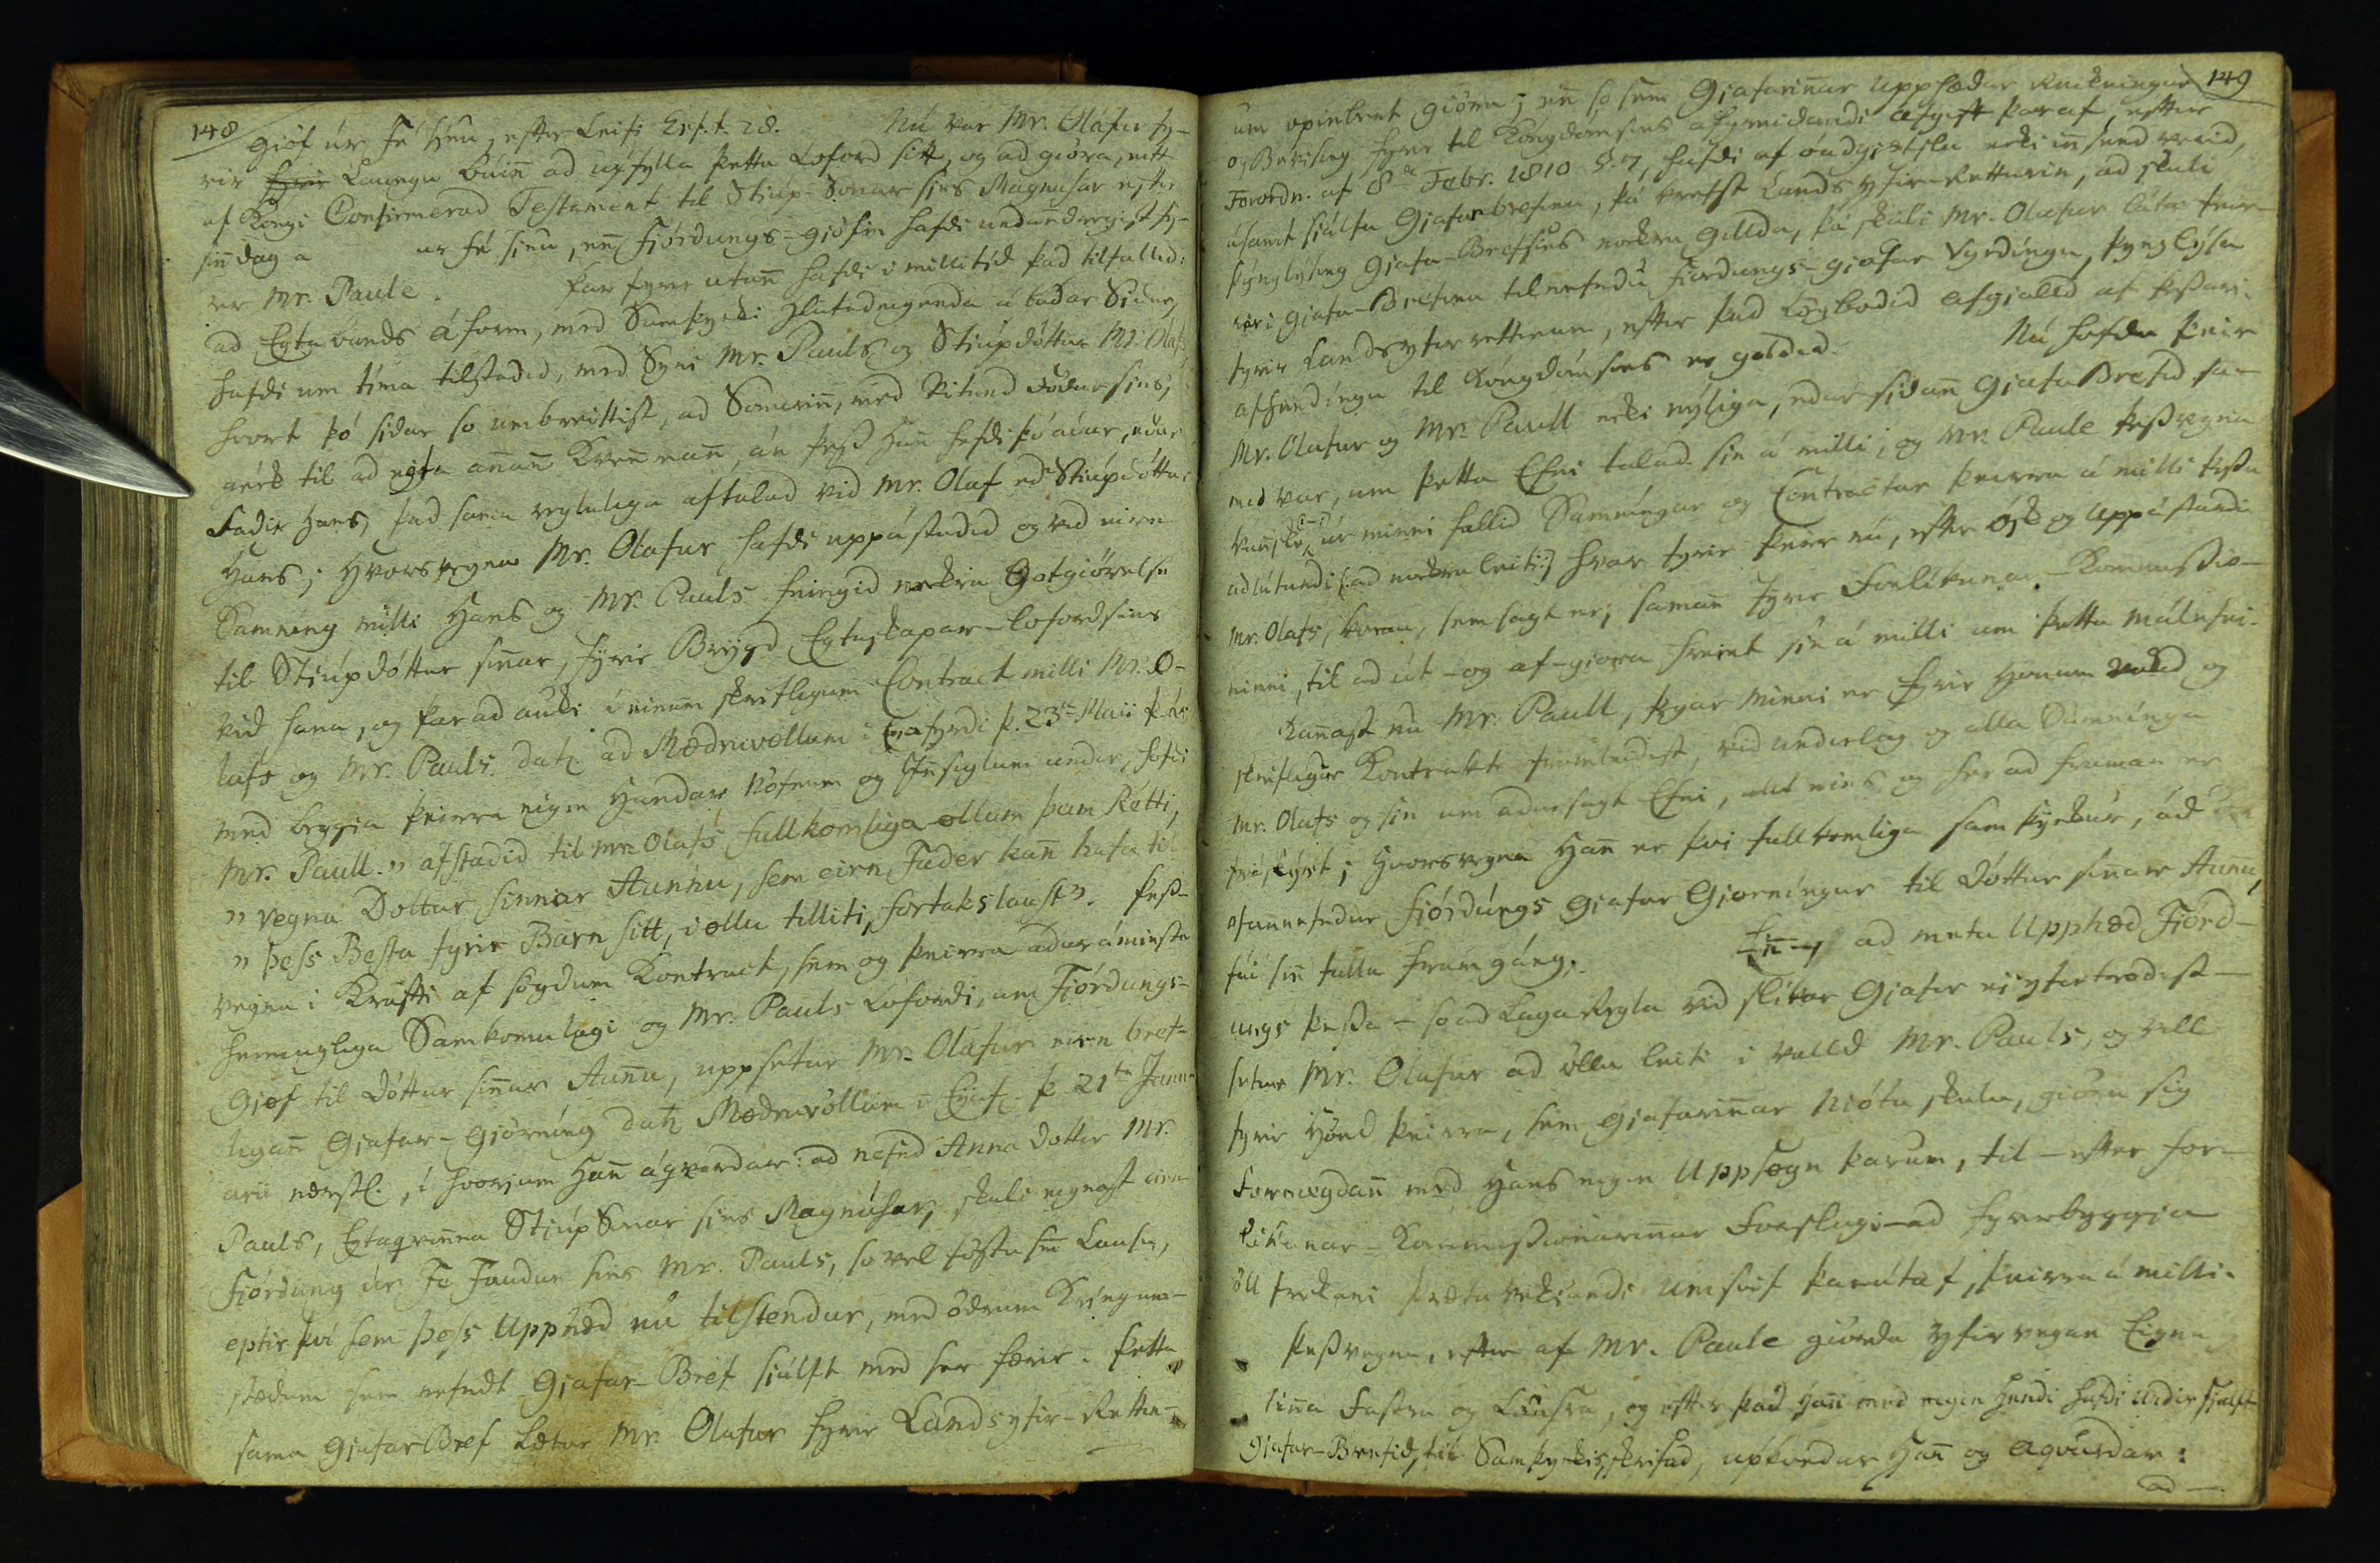 148
Giöf úr fé sínu, efter Leifi Erf. t. 28. Nú var Mr. Olafur fy-
rir fyrir Laungu búinn ad uppfylla þetta Loford sitt, og ad giöra, nitt
af Kongi Confirmerad Testament til Stiup-Sonar sins Magnusar efter
sinn dag a úr fé sínu, enn Fjórdungs-giöfin hafdi undandregist fy-
rir Mr. Paule. Þar fyrir utan hafdi i millitíd þad tilfallid:
ad Egta bands áform, med Samþycki hlutadeigenda á bádar Sidur,
hafdi um tíma tilstadid, med Syni Mr. Pauls og Stiúpdóttur Mr. Olafs
hvort þó sidar so umbreittist, ad Sonurinn, med Vitund Födur sins,
geck til ad egta annan Kvennmann, án þess Hann hefdi þó ádur, edur
Fadir Hans, þad sama reglulega aftalad vid Mr. Olaf ed Stiúpdóttur
Hans; Hvorsvegna Mr. Olafur hafdi uppástadid og vid eirn
Samning milli Hans og Mr. Pauls feingid nockra Gotgiörelse
til Stiúpdóttur sinnar, fyrir Brygd Egtaskapar-Lofordsins
vid hana, og þar ad auki i einum skriflegum Contract milli Mr. O-
lafs og Mr. Pauls dat. ad Mödruvöllum i Eyafyrdi þ. 23 Maii þ. ár
med beggia þeirra eigin Handar Nöfnum og Insiglum under, hefdi
Mr. Paull „ afstadid til Mr. Olafs fullkomliga ollum þam Rétti,
„ vegna Dottur sinnar Aunnu, sem eirn Fader kann hafa til
„ þess Besta fyrir Barn sitt, i ollu tilliti, fortakslaust“. Þess-
vegna i Krafti af sögdum Kontract, sem og þeirra ádur áminsta
heimugliga Samkomulagi og Mr. Pauls Lofordi, um Fjórdungs-
Giöf til Dóttur sinnar Aunnu, uppsetur Mr. Olafur eirn bref-
legann Giafar-Giörning dat Mödruvöllum i Eyaf. þ 21ta Janu-
arii næstl., i hvorjum Hann ágvardar: ad nefnd Anna dotter Mr.
Pauls, Egtaqvinna StiupSonar sins Magnúsar, skuli eignast eirn
Fiórdung úr Fé Faudur sins Mr. Pauls, so vel föstu sem Lausu,
eptir því sem þess Upphæd nú tilstendur, med ödrum Kringum-
stædum sem nefndt Giafar-Bref siálft med ser færir. Þetta
sama Giafar Bref Lætur Mr. Olafur fyrir Landsyfir-Rettin-

149
um opinbert giöra; enn so sem Giafarinnar Upphædar Reikningur
og Beviising fyrir til Kóngdómsins áhrærandi Afgift þaraf, efter
Forordn. af 8da Febr. 1810 §. 7, hafdi af óadgiætslu ecki innsend verid,
ásamt siálfu Giafarbrefinu, þá krefst Lands yfirretturin, ad skuli
þinglysing Giafa-Brefsins nockru gillda, þá skuli Mr. Olafur láta þeir
ri Giafa-Brefinu tilnefndu Fiordungs-giafar Vyrdingu, þinglysa
fyrir Landsyfirrettinum, efter þad Lögbodid afgialld af þessari
afhendingu til Kóngdómsins er goldid. Nú hafdu þeir
Mr. Olafur og Mr. Paull ecki nýliga, edur sidann Giafa Brefid sa-
med var, um þetta Efni talad sin á milli, og Mr. Paule þessvegna
kannske úr minni fallid Samningar og Contractar þeirra á milli þessu
adlútandi (: ad nockru leiti :) hvar fyrir þeir nú, efter ósk og Uppástandi
Mr. Olafs, koma, sem sagt er, saman fyrir Forlikunar-Kommissio-
ninni, til ad út- og af-giora hreint sin á milli um þetta málefni.
Kannast nú Mr. Paull, þegar Minni er fyrir Honum vakid og
skriflegur Kontrakt framleidist, vid underlag og alla Samninga
Mr. Olafs og sin um adursagt Efni, allt eins og her ad framan er
fráskýrt; Hvorsvegna Hann er þvi fullkomliga samþyckur, ad
ofannefndur Fiórdúngs Giafar Giörningur til Dóttur sinnar Aunnu,
fái sinn fulla framgáng. Enn ad meta Upphæd Fiord-
ungs þessa - so ad Laga Regla vid slíkar Giafir ei yfertrædist -
setur Mr. Olafur ad öllu leiti i valld Mr. Pauls, og vill
fyrir Hönd þeirra, sem Giafarinnar nióta skulu, giöra sig
Fornægdann med Hans eigin Uppsögn þarum, til - efter For-
likunar-Kommissionarinnar Forslagi - ad fyrerbyggia
öll frekari þrætuvekiandi umsvif þarútaf, þeirra á milli.
Þessvegna, efter af Mr. Paule giörda yfirvegan Eigna
sinna Fastra og Lausra, og efter þad Hann med eigin Hendi hafdi undir sjálft
Giafar-Brefid, til Samþyckis, skrifad, uppkvedur Hann og Aqvardar:
ad -